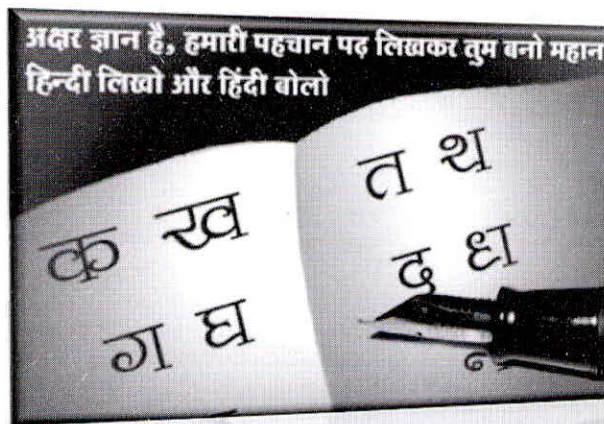 अक्षर ज्ञान है, हमारी पहचान पढ़ लिखकर तुम बनो महान
हिन्दी लिखो और हिंदी बोलो
क ख
ग घ
त थ
द ध